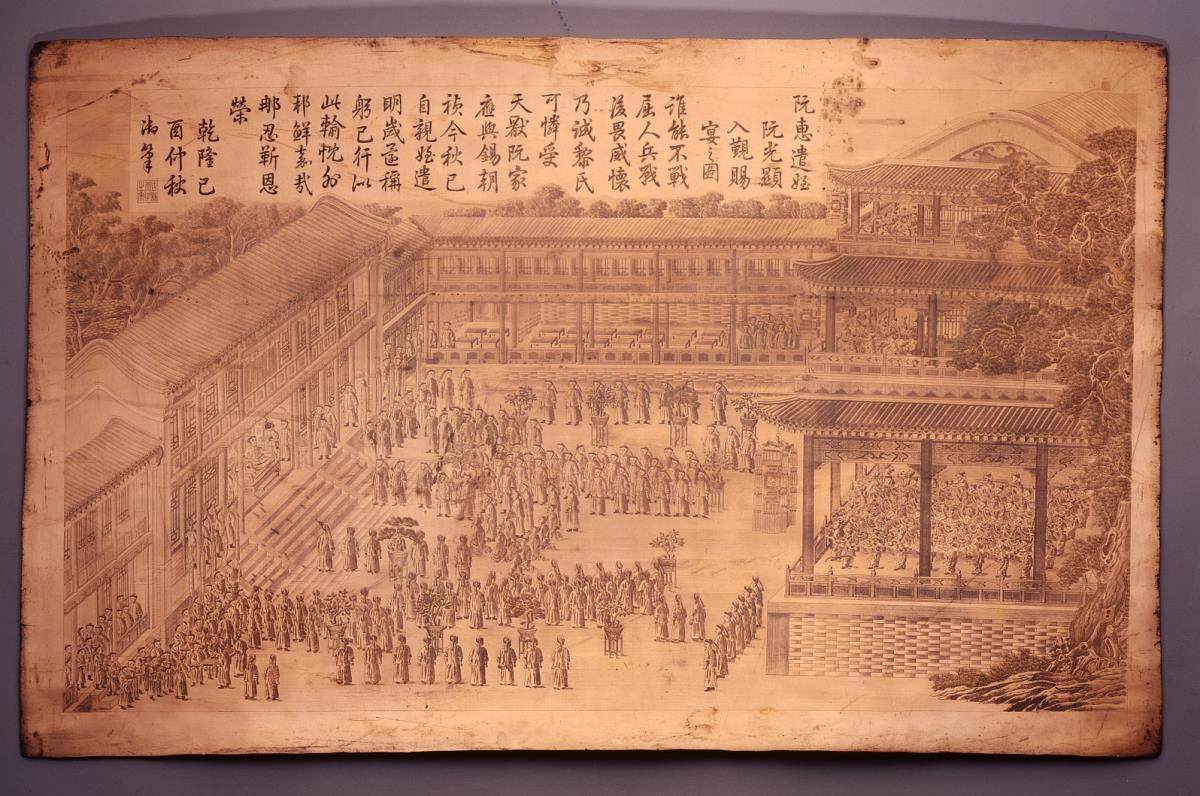 阮惠遣姪
阮光顯
入覲賜
宴之圖
誰能不戰
屈人兵戰
後畏威懷
乃誠黎氏
可憐受
天厭阮家
應與錫朝
禎今秋已
自親姪遣
明歲稱
躬已行似
此輸忱外
邦鮮嘉哉
那忍靳恩
榮
乾隆己
酉仲秋
御筆